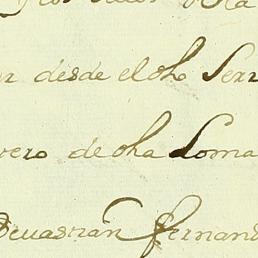 desde el dho Serr
vero de dha Loma
Sevastian Fernand